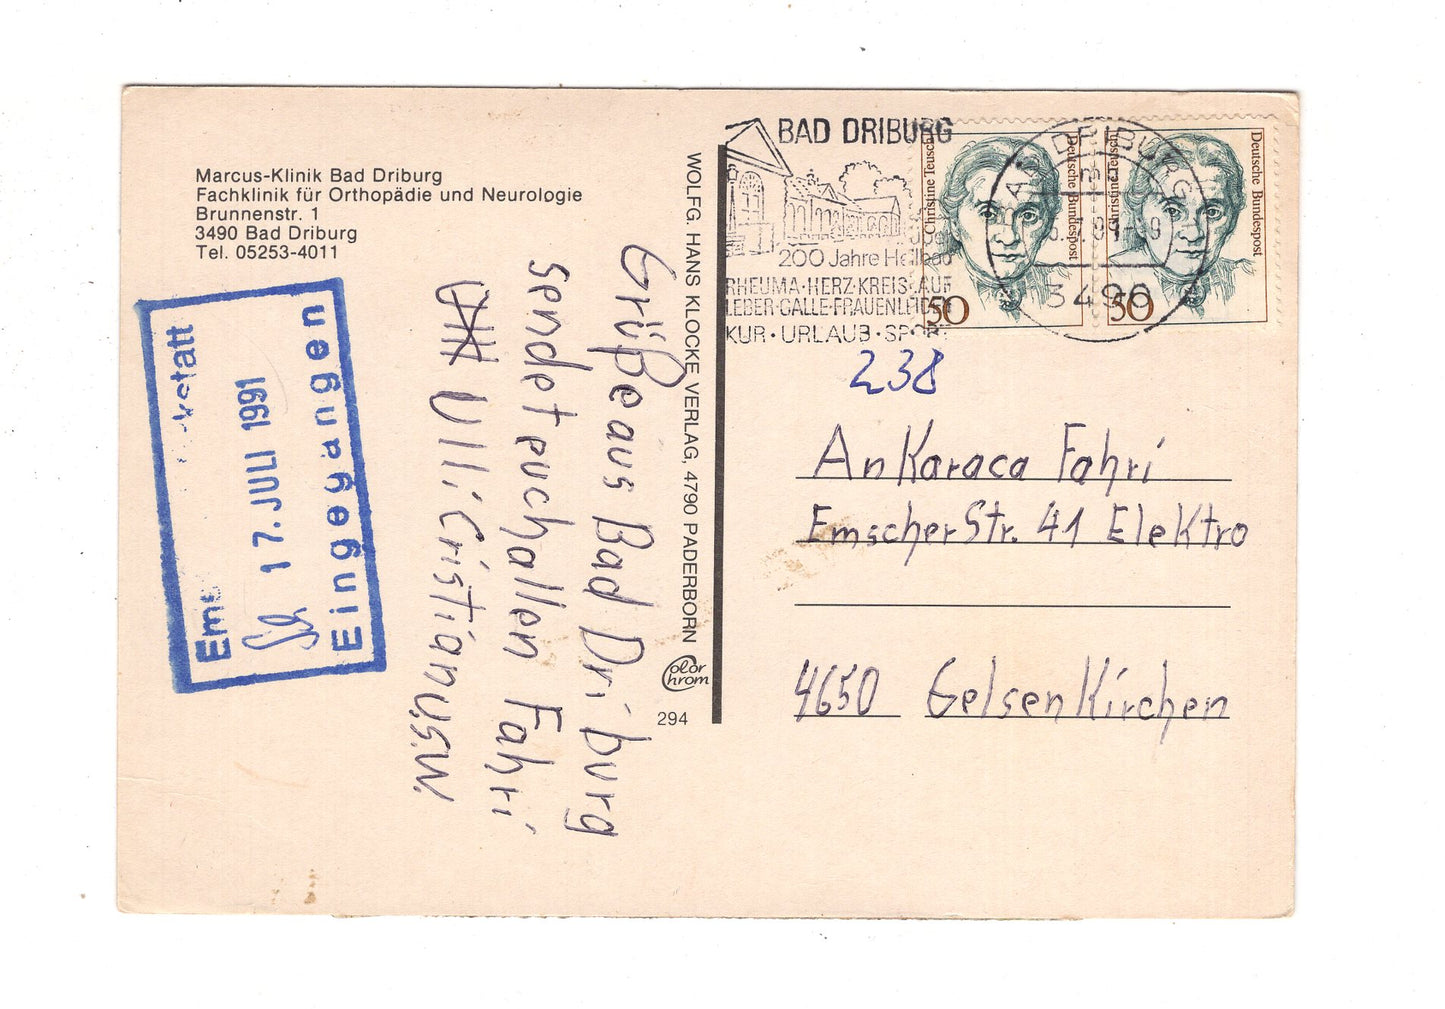 Marcus-Klinik Bad Driburg
Fachklinik für Orthopädie und Neurologie
Brunnenstr. 1
3490 Bad Driburg
Tel. 05253-4011
17. JULI 1991
Eingegangen
Grüße aus Bad Driburg
sendet euch allen Fahri
Ulli Cristian u.s.w.
WOLFG. HANS KLOCKE VERLAG, 4790 PADERBORN
Color Chrom
294
BAD DRIBURG
200 Jahre Heilbad
RHEUMA·HERZ·KREISLAUF
LEBER·GALLE·FRAUENLEIDEN
KUR·URLAUB·SPORT
BAD DRIBURG
3490
Christine Teusch
Deutsche Bundespost
50
Christine Teusch
Deutsche Bundespost
50
238
An Karaca Fahri
Emscher Str. 41 Elektro
4650 Gelsenkirchen